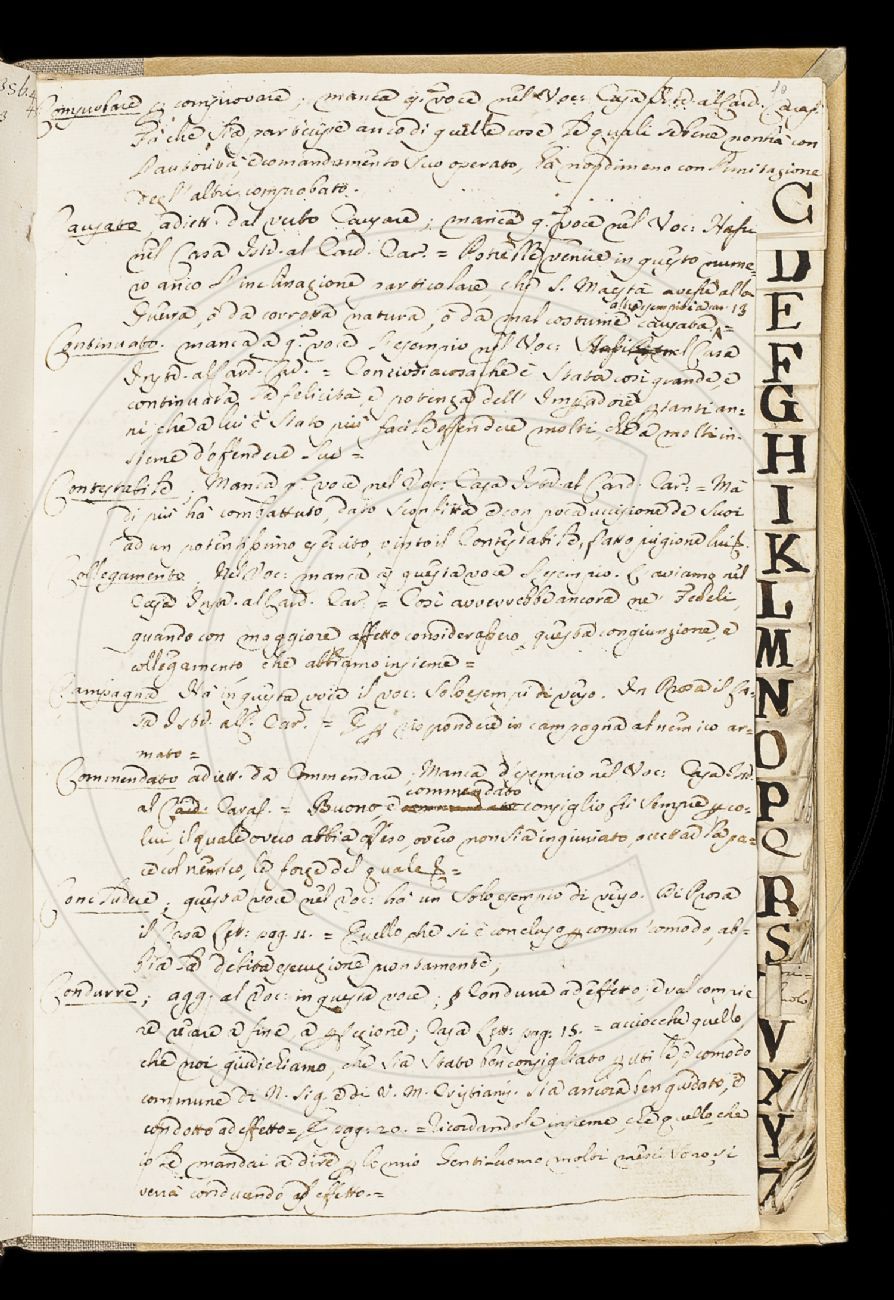 356.
3
10
Comprobare p comprovare; manca q.a voce nel Voc: Casa Ist. al Card. Caraf.
Fà che sia participe anco di quelle cose le quali sebene non hà con
l'autorità e comandamento suo operato, hà nondimeno con l'imitazione
degl'altri comprobato.
Causato, adiett. dal verbo Causare; manca q.a voce nel Voc:
nel Casa Istr. al Card. Car. = Potrebbe venire in questo nume-
ro anco l'inclinazione particolare, che S. Maestà avesse alla
altro esempio ivi a car. 13
Guerra, ò da corrotta natura, ò da mal costume causata =
Continuato. manca a q.a voce l'esempio nel Voc: nel Casa
Instr. al Card. Car. = Conciosiacosache è stata così grande, e
continuata la felicità, e potenza dell'Imperadore p tanti an-
ni che a lui è stato più facile offendere molti, che a molti in-
sieme d'offendere lui =
Contestabile; Manca q.a voce nel Voc: Casa Istr. al Card. Car. = Mà
di più hà combattuto, dato sconfitta e con poca uccisione de suoi
ad un potentissimo esercito, vinto il Contestabile, fatto prigione lui &.
Collegamento, Nel Voc: manca a questa voce l'esempio. L'aviamo nel
Casa Instr. al Card. Car. = Così avverrebbe ancora ne' Fedeli,
quando con maggiore affetto considerassero questa congiunzione, e
collegamento che abbiamo insieme =
Campagna Hà in questa voce il voc: solo esempi di verso. In Prosa il Ca-
sa Istr. all. Car. = E p rispondere in campagna al nemico ar-
mato =
Commendato adiett. da Commendare, Manca d'esempio nel Voc: Casa Istr.
commendato
al Card. Caraf. = Buono, e commendato consiglio fu sempre p co-
lui il quale overo abbia offeso, overo non sia ingiuriato, accettar la pa-
ce col nemico, le forze del quale & =
Concludere; questa voce nel Voc: hà un solo esempio di verso. Di Prosa
il Casa Lett: pag. 11. = Quello che si è concluso p comun comodo, ab-
bia la debita esecuzione prontamente;
Condurre; agg: al Voc: in questa voce; p Condurre ad effetto; e val compie
re tirare a fine, a pfezione; Casa Lett: pag. 15. = acciocche quello,
che noi giudichiamo, che sia stato ben consigliato p utile e comodo
commune di N. Sig. e di V. M. Cristianis. sia ancora ben guidato, e
condotto ad effetto =, E pag: 20. = Ricordandole insieme che quello che
io le mandai a dire p lo mio Gentiluomo molti mesi sono, si
verrà conducendo ad effetto. =
C
D
E
F
G
H
I
K
L
M
N
O
P
Q
R
S
V
X
Y
Z